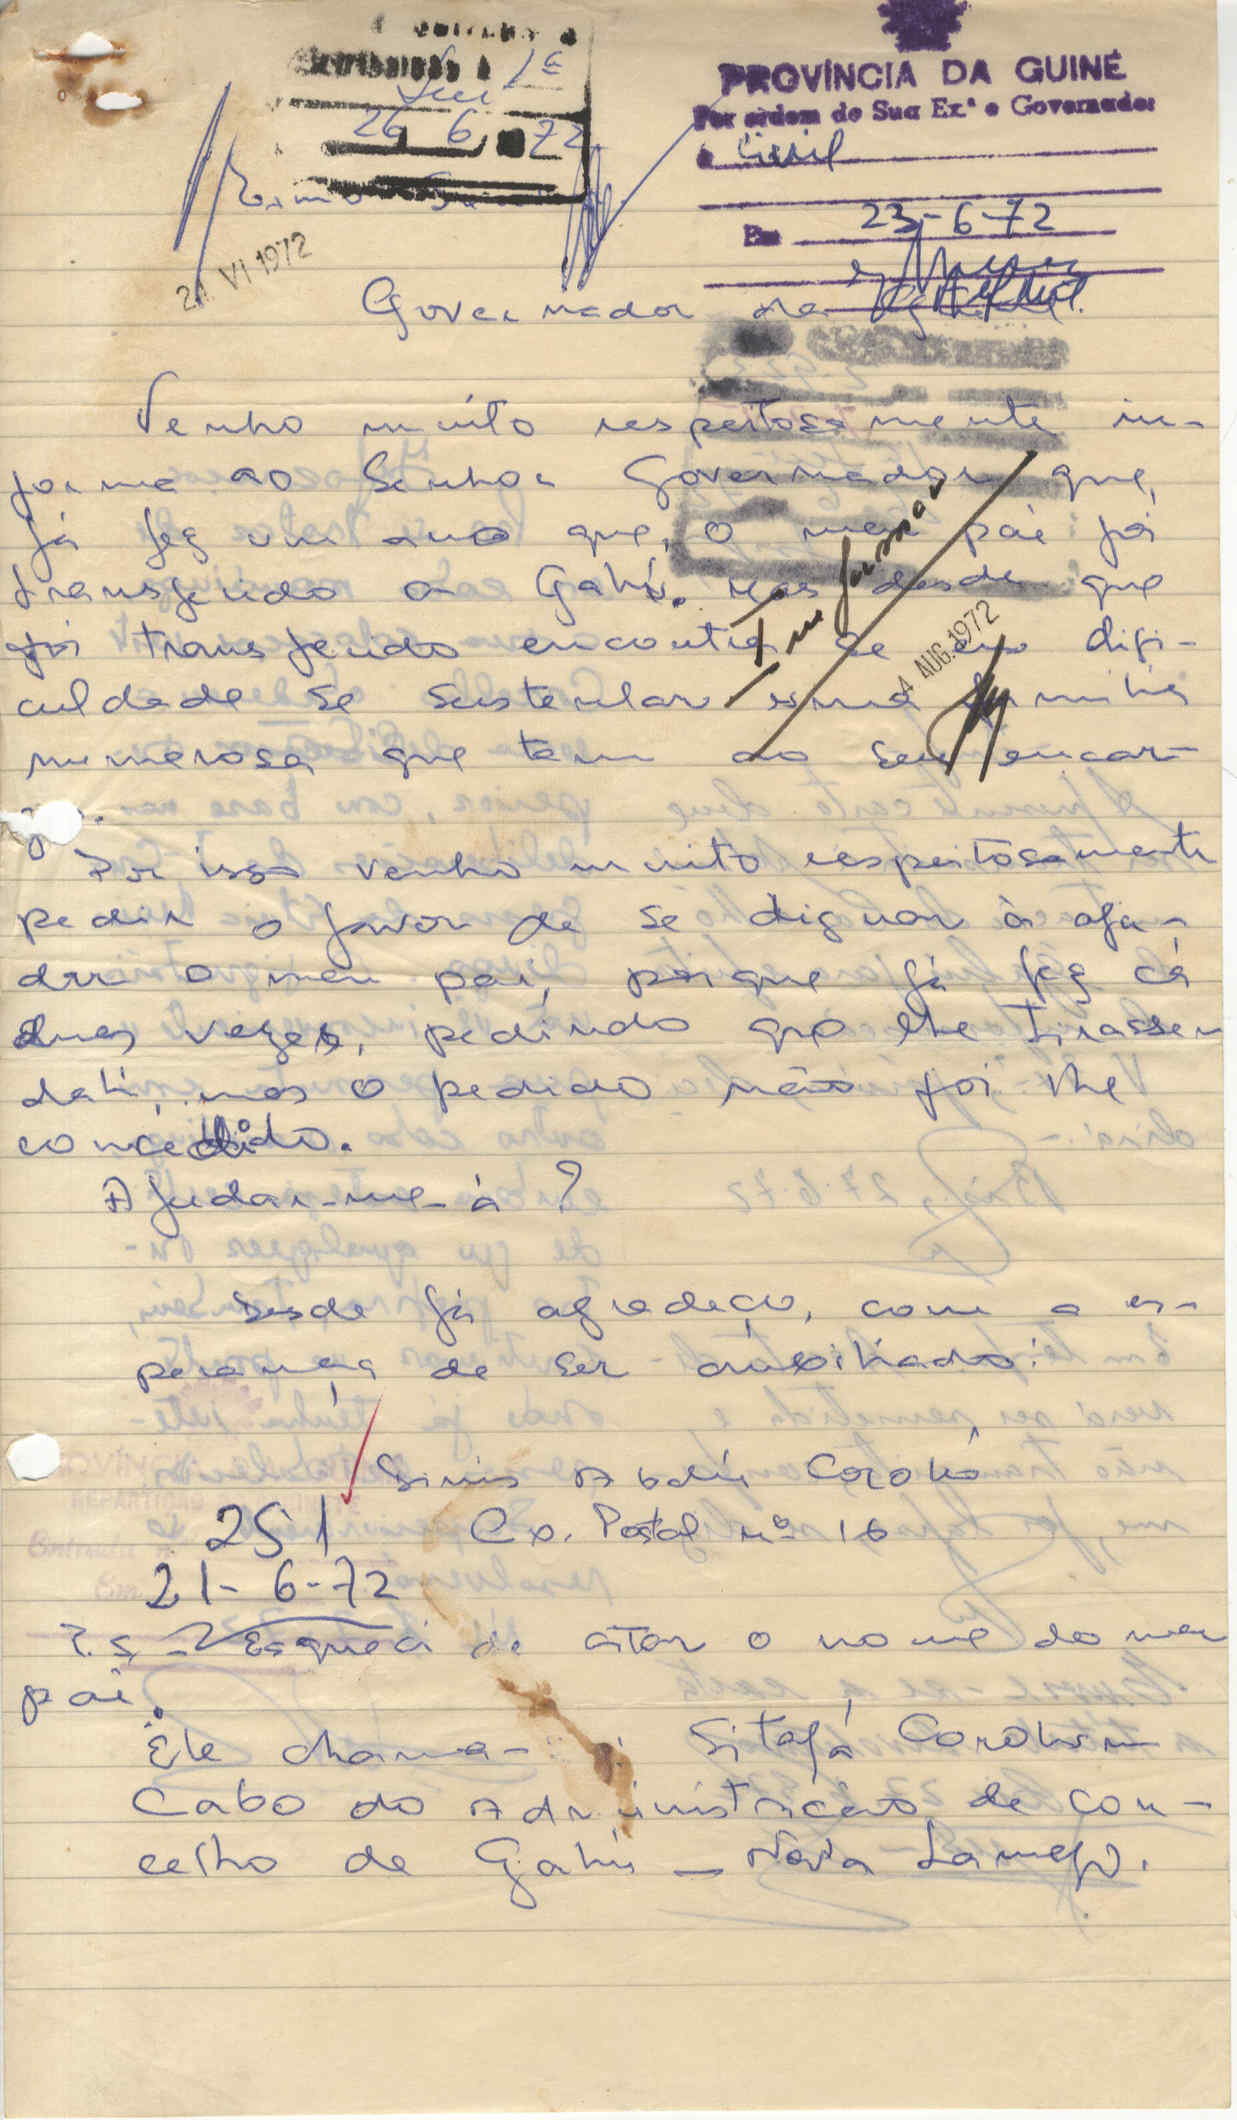 PROVÍNCIA DA GUINÉ
Por ordem de Sua Ex.ª o Governador
à Civil
26 6 72
Em 23-6-72
21 VI 1972
Governador da
Venho muito respeitosamente in-
forma ao Senhor Governador que,
já fez um ano que, o meu pai foi
transferido a Gabú. Mas desde que
foi transferido encontra se em difi-
culdade se sustentar uma familia
numerosa que tem ao seu encar-
go.
4 AUG. 1972
Por isso venho muito respeitosamente
pedir o favor de se dignar à aju-
dar o meu pai, porque já fez cá
duas vezes, pedindo que lhe tirassem
dali, mas o pedido não foi lhe
concedido.
Ajudar-me-á?
Desde já agradeço, com a es-
perança de ser auxiliado:
Abdú Corobó
251 Cx. Postal nº 16
21-6-72
P.S. - Esqueci de citar o nome do meu
pai.
Ele chama- : Sitafá
Cabo do Administração de con-
celho de Gabú - Nova Lamego.